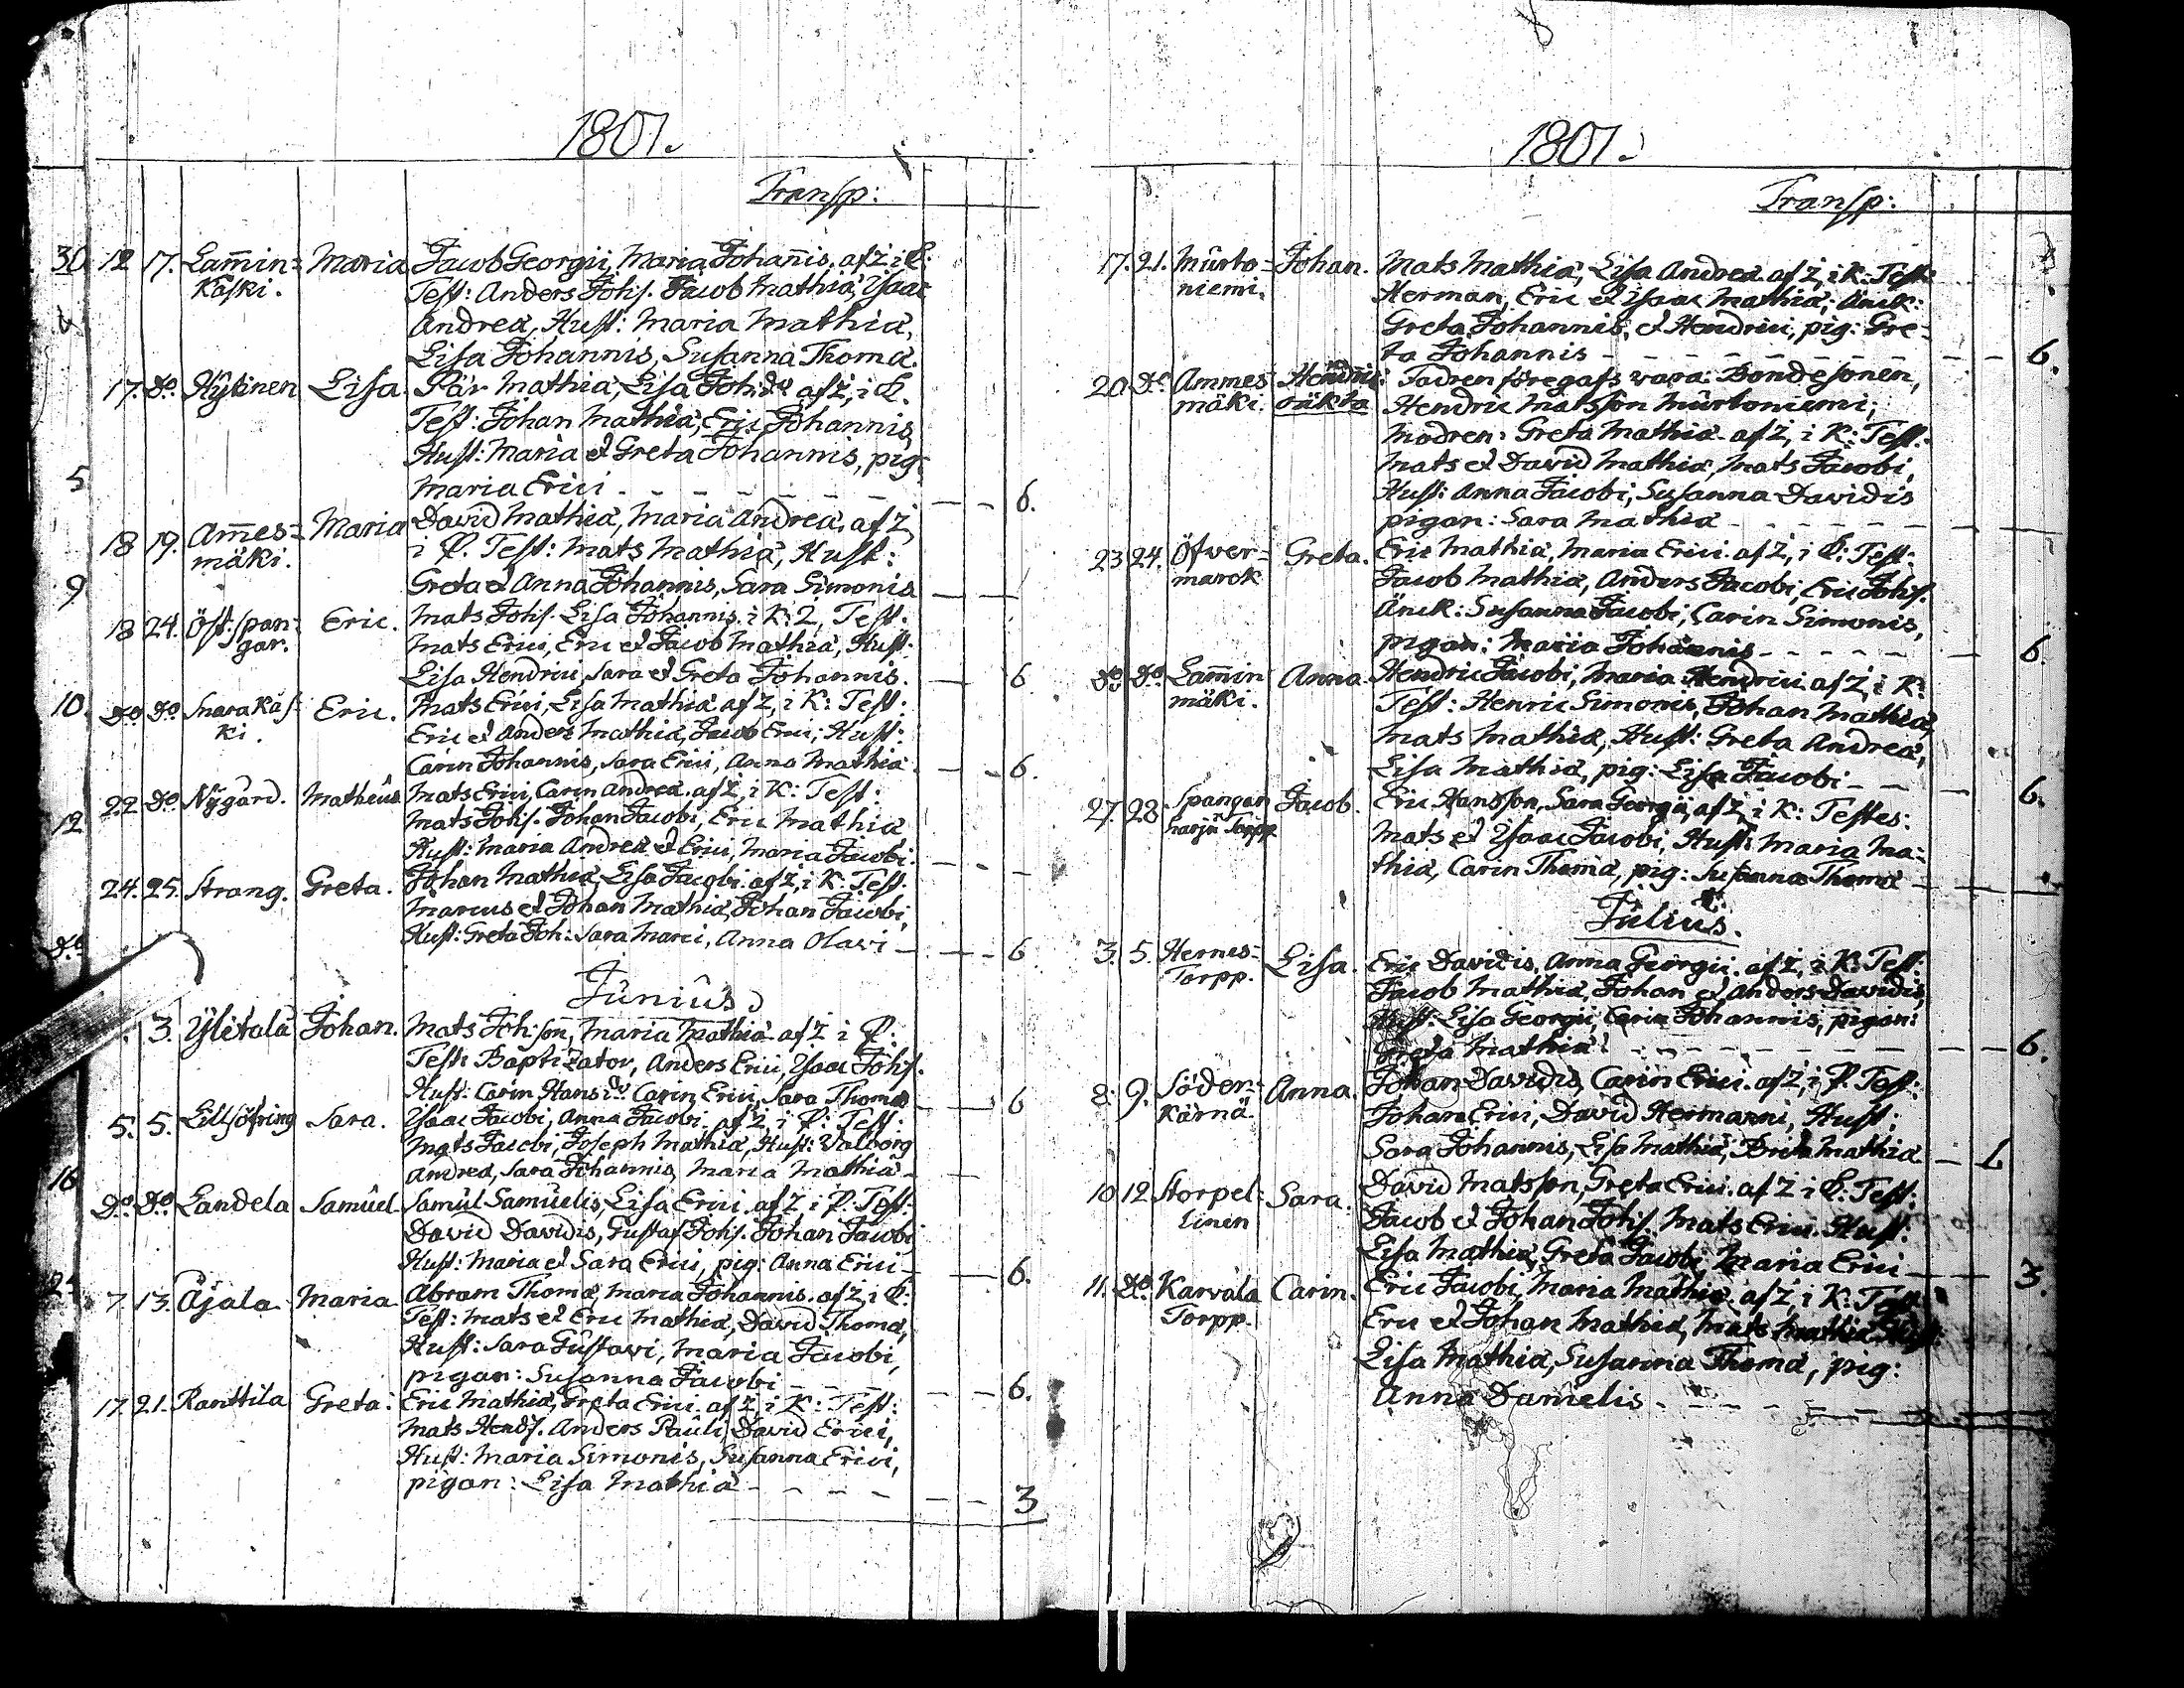 1801.
Transp:
30 12 17. Lam̄in= Maria Jacob Georgii, Maria Johan̄is. af z, i P.
Kåski. Test: Anders Johs. Jacob Mathiæ, Ysaac
Andreæ, Hust: Maria Mathiæ,
Lisa Johannis, Susanna Thomæ.
17. Do. Hytinen Lisa. Pär Mathiæ, Lisa Joh: af z, i P.
Test: Johan Mathiæ, Eric Johannis,
Hust: Maria et Greta Johannis, pig:
5 Maria Erici - - - - - - - 6.
18 19. Am̄es= Maria David Mathiæ, Maria Andreæ. af z
mäki. i P. Test: Mats Mathiæ, Hust:
9 Greta et Anna Johannis, Sara Simonis
18 24. Öst. span- Eric. Mats Johs. Lisa Johannis. i K: 2, Test:
gar. Mats Erici, Eric et Jacob Mathiæ, Hust:
Lisa Hendrici, Sara et Greta Johannis. - 6
10. Do Do Snarakås- Eric. Mats Erici, Lisa Mathiæ. af z, i K: Test:
ki. Eric et Anders Mathiæ, Jacob Erici; Hust:
Carin Johannis, Sara Erici, Anna Mathiæ - - 6.
12 22 Do Nygård. Matheus Mats Erici, Carin Andreæ. af z, i K: Test:
Mats Johs. Johan Jacobi, Eric Mathiæ
Hust: Maria Andreæ et Erici, Maria Jacobi.
24. 25. Strang. Greta. Johan Mathiæ, Lisa Jacobi. af z, i K. Test:
Marcus et Johan Mathiæ, Johan Jacobi,
Do. Hust: Greta Joh: Sara Marci, Anna Olavi - - - 6
Junius.
3. Ylitalå Johan. Mats Joh:son, Maria Mathiæ. af z i P:
Test: Baptizator, Anders Erici, Ysaac Johs.
Hust: Carin Hans:dr Carin Erici, Sara Thomæ - 6
5. 5. Lillsöfring Sara. Ysaac Jacobi, Anna Jacobi. af z, i P: Test:
Mats Jacobi, Joseph Mathiæ, Hust: Valborg
16 Andreæ, Sara Johannis, Maria Mathiæ -
Do. Do. Landela Samuel Samūl Samuelis, Lisa Erici. af z i P. Test:
David Davidis, Gustaf Johs. Johan Jacobi
Hust: Maria et Sara Erici, pig: Anna Erici - 6.
7. 13. Äjala. Maria Abram Thomæ, Maria Johannis. af z, i P:
Test: Mats et Eric Mathiæ, David Thomæ,
Hust: Sara Gustavi, Maria Jacobi,
pigan: Susanna Jacobi - - - - 6.
17. 21. Ranttila Greta. Eric Mathiæ, Greta Erici. af z, i K: Test:
Mats Hends. Anders Pauli, David Erici,
Hust: Maria Simonis, Susanna Erici,
pigan: Lisa Mathiæ - - - - - 3
1801.
Transp:
17. 21. Murto= Johan. Mats Mathiæ, Lisa Andreæ. af z, i K: Test:
niemi. Herman, Eric et Ysaac Mathiæ; Änck:
Greta Johannis, et Hendrici, pig: Gre-
ta Johannis - - - - - - - - 6.
20 Do. Ammes Hendric: Fadren föregafs vara: Bondesonen,
mäki. oäkta Hendric Matsson Murtoniemi;
Modren: Greta Mathiæ. af z, i K: Test:
Mats et David Mathiæ, Mats Jacobi,
Hust: Anna Jacobi, Susanna Davidis
pigan: Sara Mathiæ - - - - - - -
23. 24. Öfver= Greta. Eric Mathiæ, Maria Erici. af z, i P: Test:
marck Jacob Mathiæ, Anders Jacobi, Eric Johs.
Änck: Susanna Jacobi, Carin Simonis,
pigan: Maria Johannis - - - - - - 6.
Do. Do. Lam̄in Anna. Hendric Jacobi, Maria Hendrici. af z, i K:
mäki. Test: Henric Simonis, Johan Mathiæ,
Mats Mathiæ, Hust: Greta Andreæ,
Lisa Mathiæ, pig: Lisa Jacobi - - - 6.
27. 28 Spangar Jacob. Eric Hansson, Sara Georgii, af z, i K: Testes:
harju Torpp Mats et Ysaac Jacobi, Hust: Maria Ma=
thiæ, Carin Thomæ, pig: Susanna Thomæ
Julius.
3. 5. Hernes- Lisa. Eric Davidis, Anna Georgii. af z, i K: Test:
Torpp. Jacob Mathiæ, Johan et Anders Davidis,
Hust: Lisa Georgii, Carin Johannis, pigan:
Greta Mathiæ - - - - - - - - - - 6.
8. 9. Söder- Anna. Johan Davidis, Carin Erici. af z, i P. Test:
Kärnä. Johan Erici, David Hermanni, Hust:
Sara Johannis, Lisa Mathiæ, Brita Mathiæ - 1.
10 12. Storpel- Sara. David Matsson, Greta Erici. af z i P. Test:
linen Jacob et Johan Johs. Mats Erici. Hust:
Lisa Mathiæ, Greta Jacobi, Maria Erici - - 3.
11. Do. Karvala Carin. Eric Jacobi, Maria Mathiæ. af z, i K: Test:
Torpp. Eric et Johan Mathiæ, Mats Mathiæ Hust:
Lisa Mathiæ, Susanna Thomæ, pig:
Anna Danielis. - - - - - -